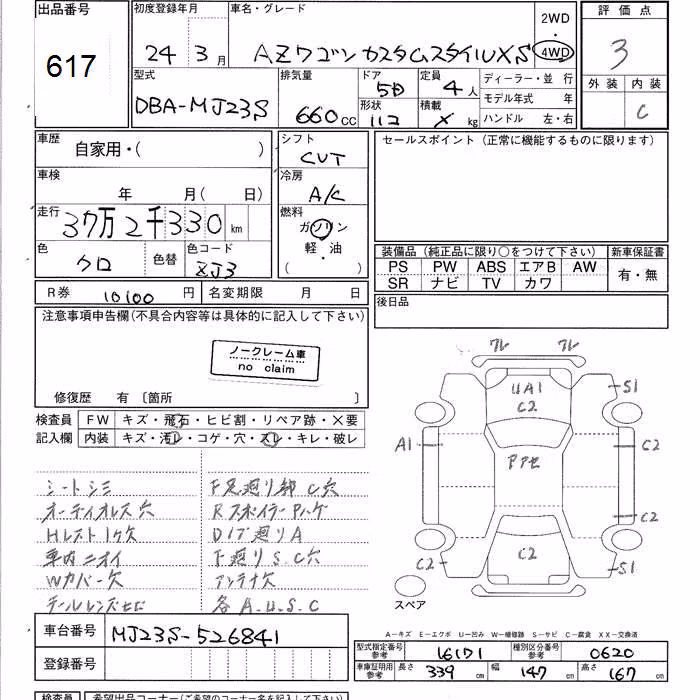 出品番号
617
初度登録年月
24 3月
車名・グレード
AZワゴン カスタムスタイルXS
2WD
・
4WD
評価点
3
外装 内装
C
型式
DBA-MJ23S
排気量
660cc
ドア
5D
形状
定員
4人
積載
× kg
ディーラー・並 行
モデル年式 年
ハンドル 左・右
車歴
自家用・( )
シフト
CVT
セールスポイント (正常に機能するものに限ります)
車検
年 月( 日)
冷房
A/C
走行
37万2千330 km
燃料
ガソリン
軽・油
( )
色
クロ
色替
色コード
ZJ3
装備品 (純正品に限り○をつけて下さい)
新車保証書
PS PW ABS エアB AW
有・無
SR ナビ TV カワ
R券 10100 円
名変期限 月 日
後日品
注意事項申告欄(不具合内容等は具体的に記入して下さい)
ノークレーム車
no claim
修復歴 有 〔箇所 〕
検査員
記入欄
FW キズ・飛石・ヒビ割・リペア跡・X要
内装 キズ・汚レ・コゲ・穴・スレ・キレ・破レ
シートシミ
オーディオレス 穴
Hレスト1ケ欠
車内ニオイ
Wカバー欠
下足廻り錆C穴
RスポイラーPハゲ
Dノブ廻りA
下廻りS.C穴
アンテナ欠
各A.U.S.C
UA1
C2
S1
A1
C2
C2
C2
C2
S1
スペア
A-キズ E-エクボ U-凹み W-補修跡 S-サビ C-腐食 XX-交換済
車台番号
MJ23S-526841
登録番号
型式指定番号
参考
16171
種別区分番号
参考
0620
車庫証明用
参考
長さ 339 cm
幅 147 cm
高さ 167 cm
検査員
希望出品コーナー(ご希望のコーナー名を記入下さい)